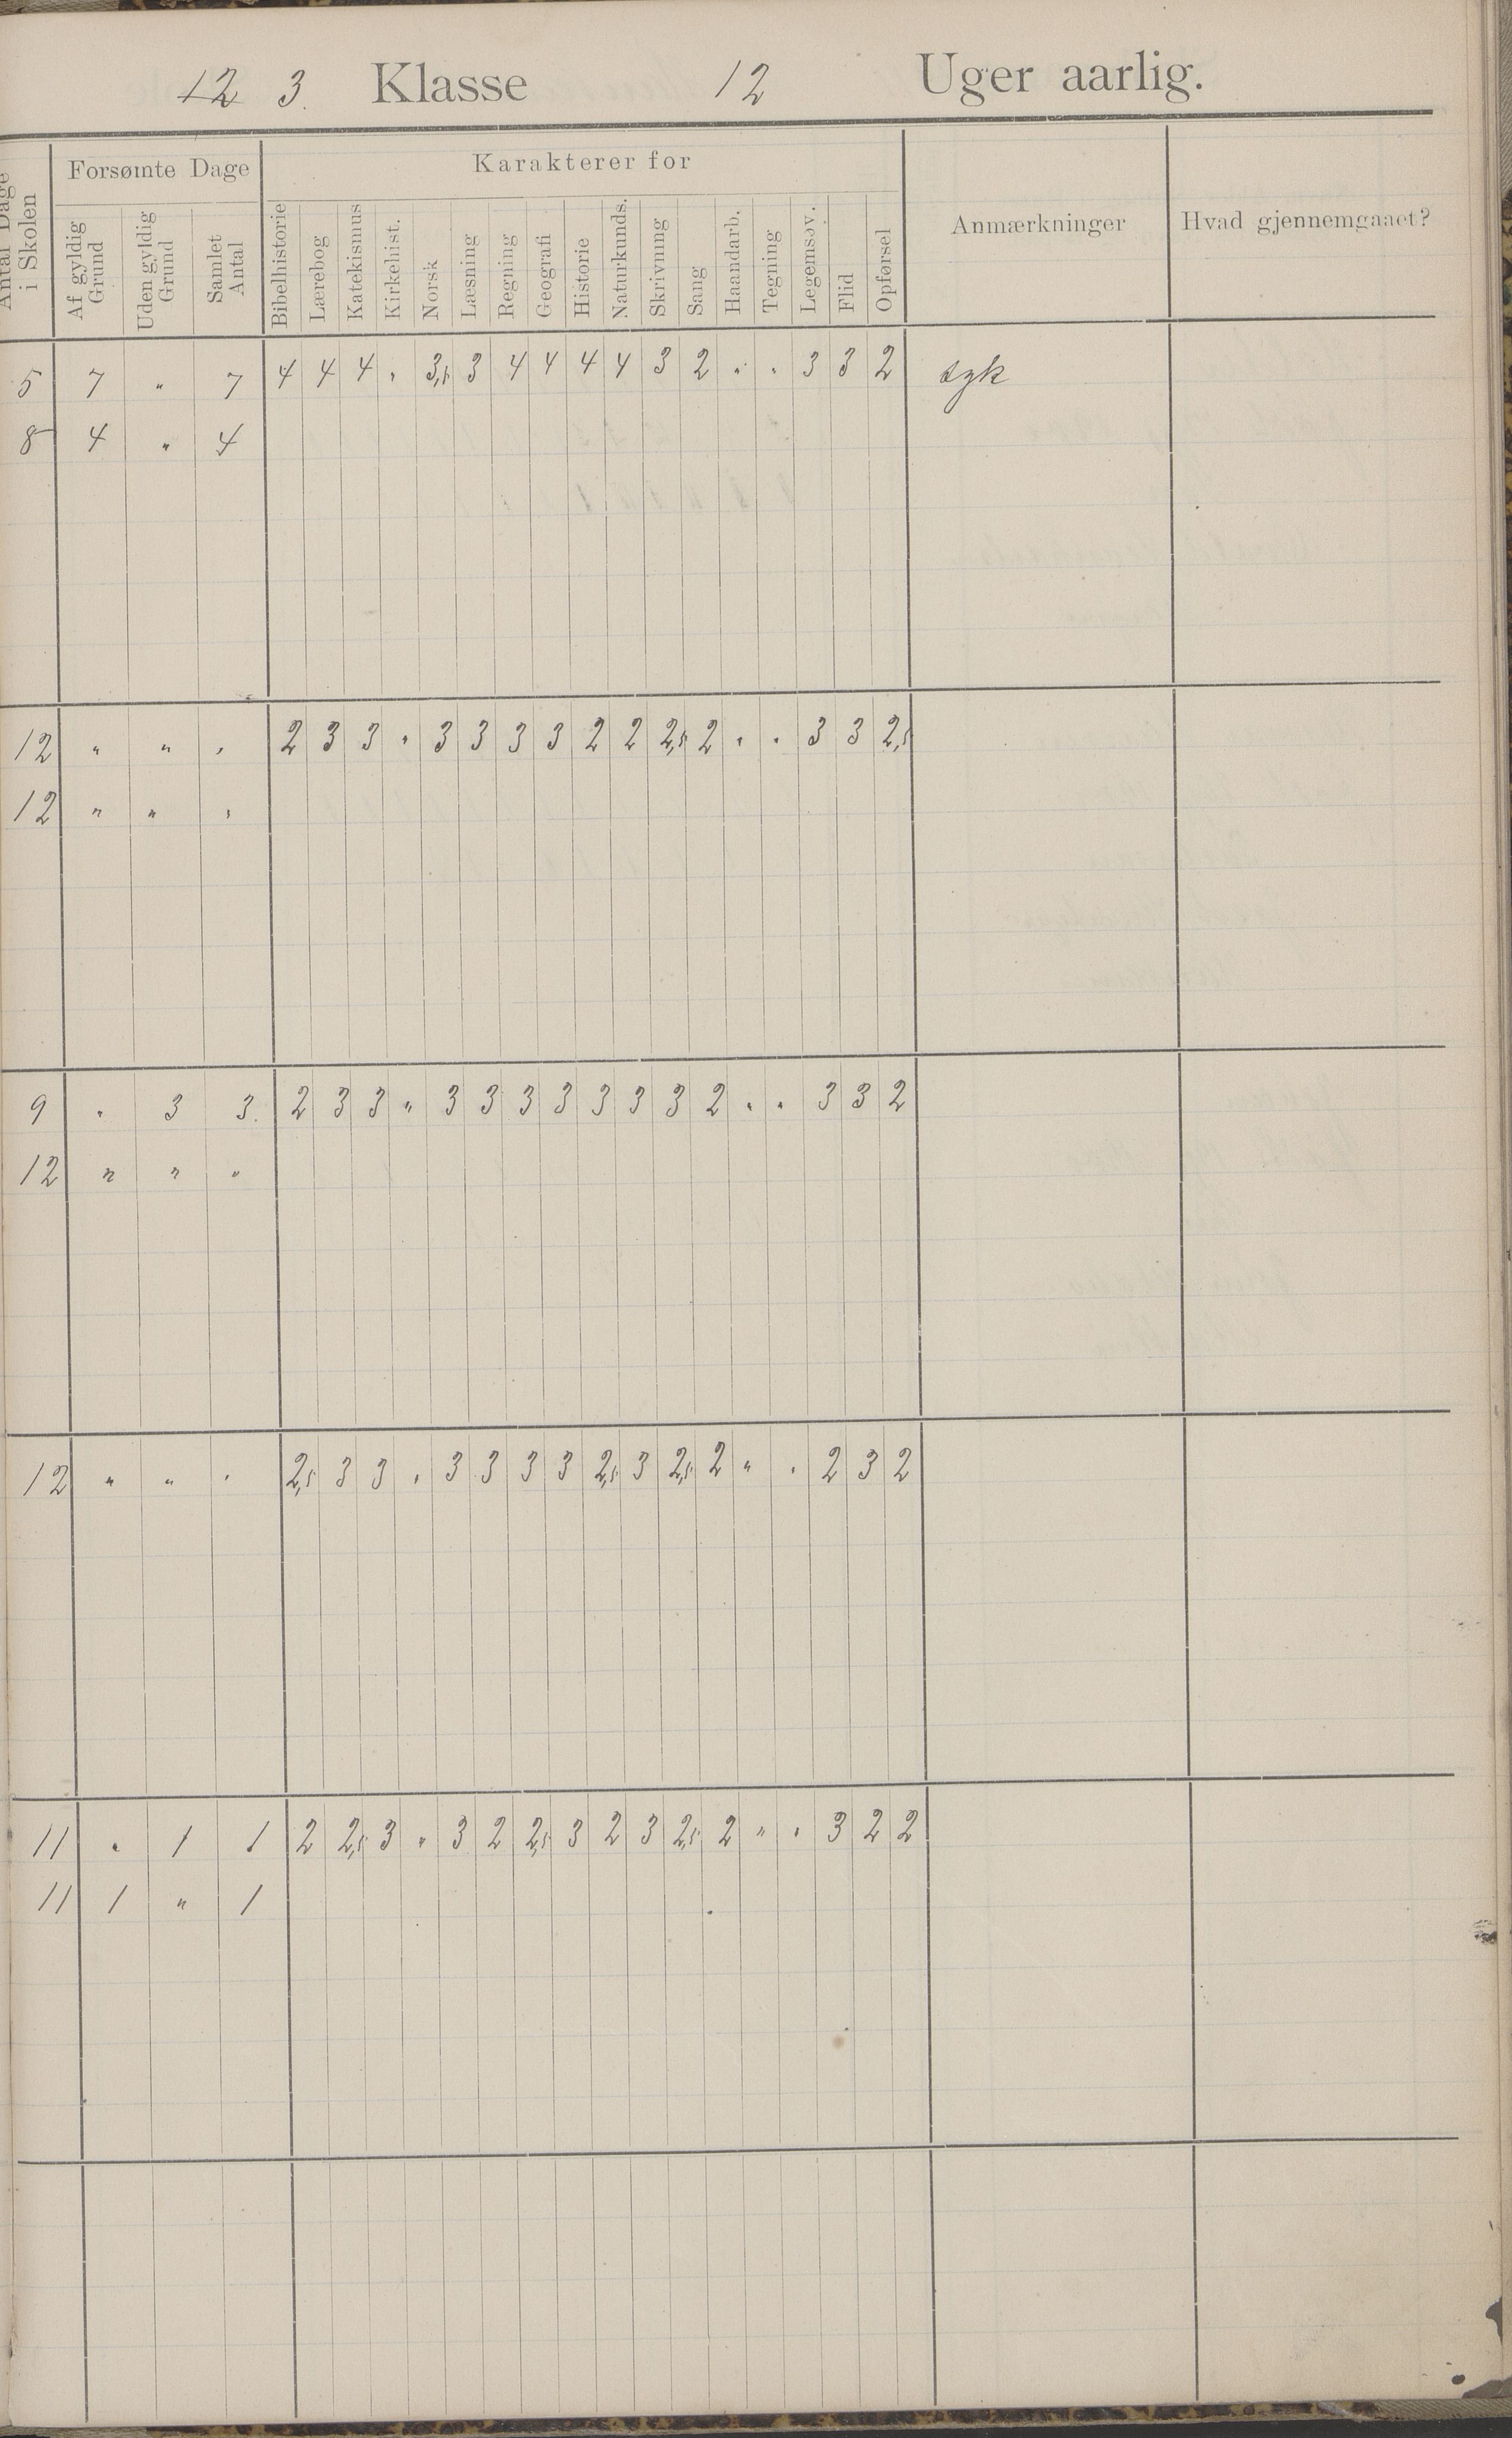 12 3. Klasse 12 Uger aarlig.
Antal Dage i Skolen Forsømte Dage Karakterer for Anmærkninger Hvad gjennemgaaet?
Af gyldig Grund Uden gyldig Grund Samlet Antal Bibelhistorie Lærebog Katekismus Kirkehist. Norsk Læsning Regning Geografi Historie Naturkunds. Skrivning Sang Haandarb. Tegning Legemsøv. Flid Opførsel
5 7 " 7 4 4 4 " 3,5 3 4 4 4 4 3 2 " " 3 3 2 syk
8 4 " 4
12 " " " 2 3 3 " 3 3 3 3 2 2 2,5 2 " " 3 3 2,5
12 " " "
9 " 3 3. 2 3 3 " 3 3 3 3 3 3 3 2 " " 3 3 2
12 " " "
12 " " " 2,5 3 3 " 3 3 3 3 2,5 3 2,5 2 " " 2 3 2
11 " 1 1 2 2,5 3 " 3 2 2,5 3 2 3 2,5 2 " " 3 2 2
11 1 " 1